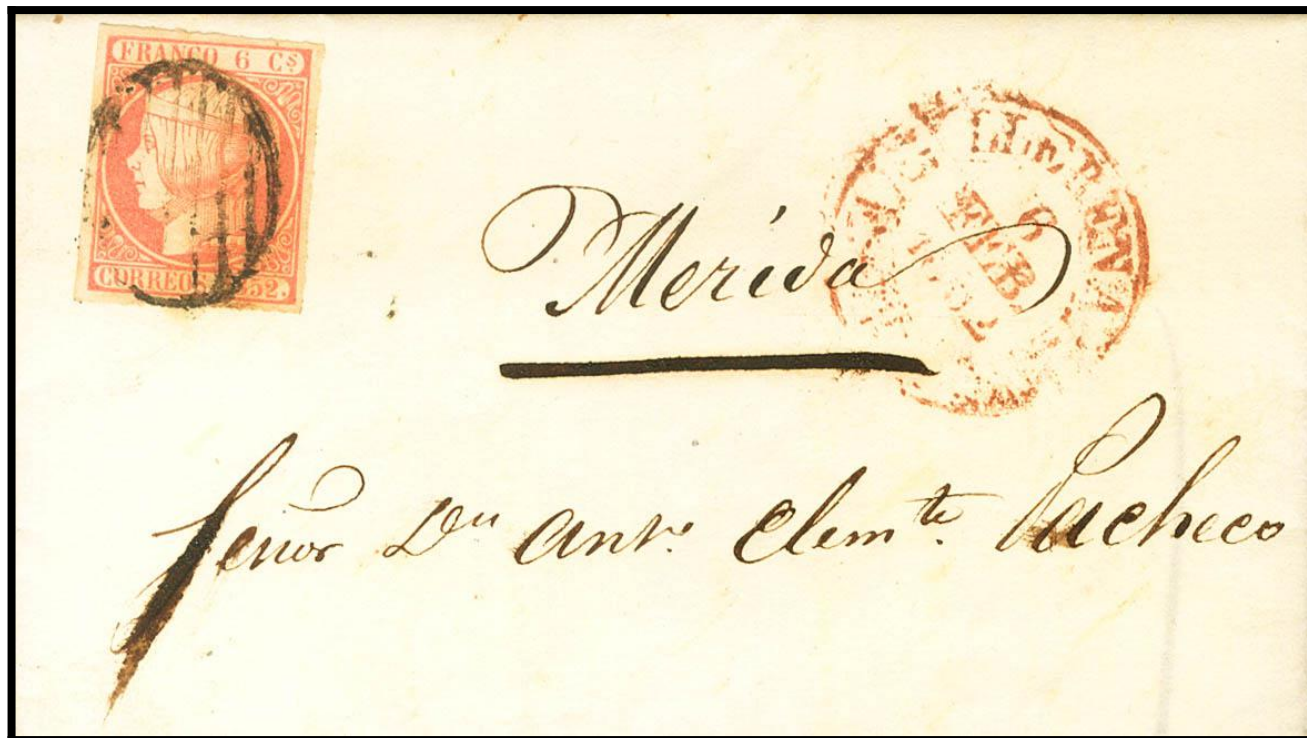 FRANCO 6 Cs
CORREOS 52.
LLERENA
6
FEB
Merida
Señor Dn Anto. Clemte. Pacheco